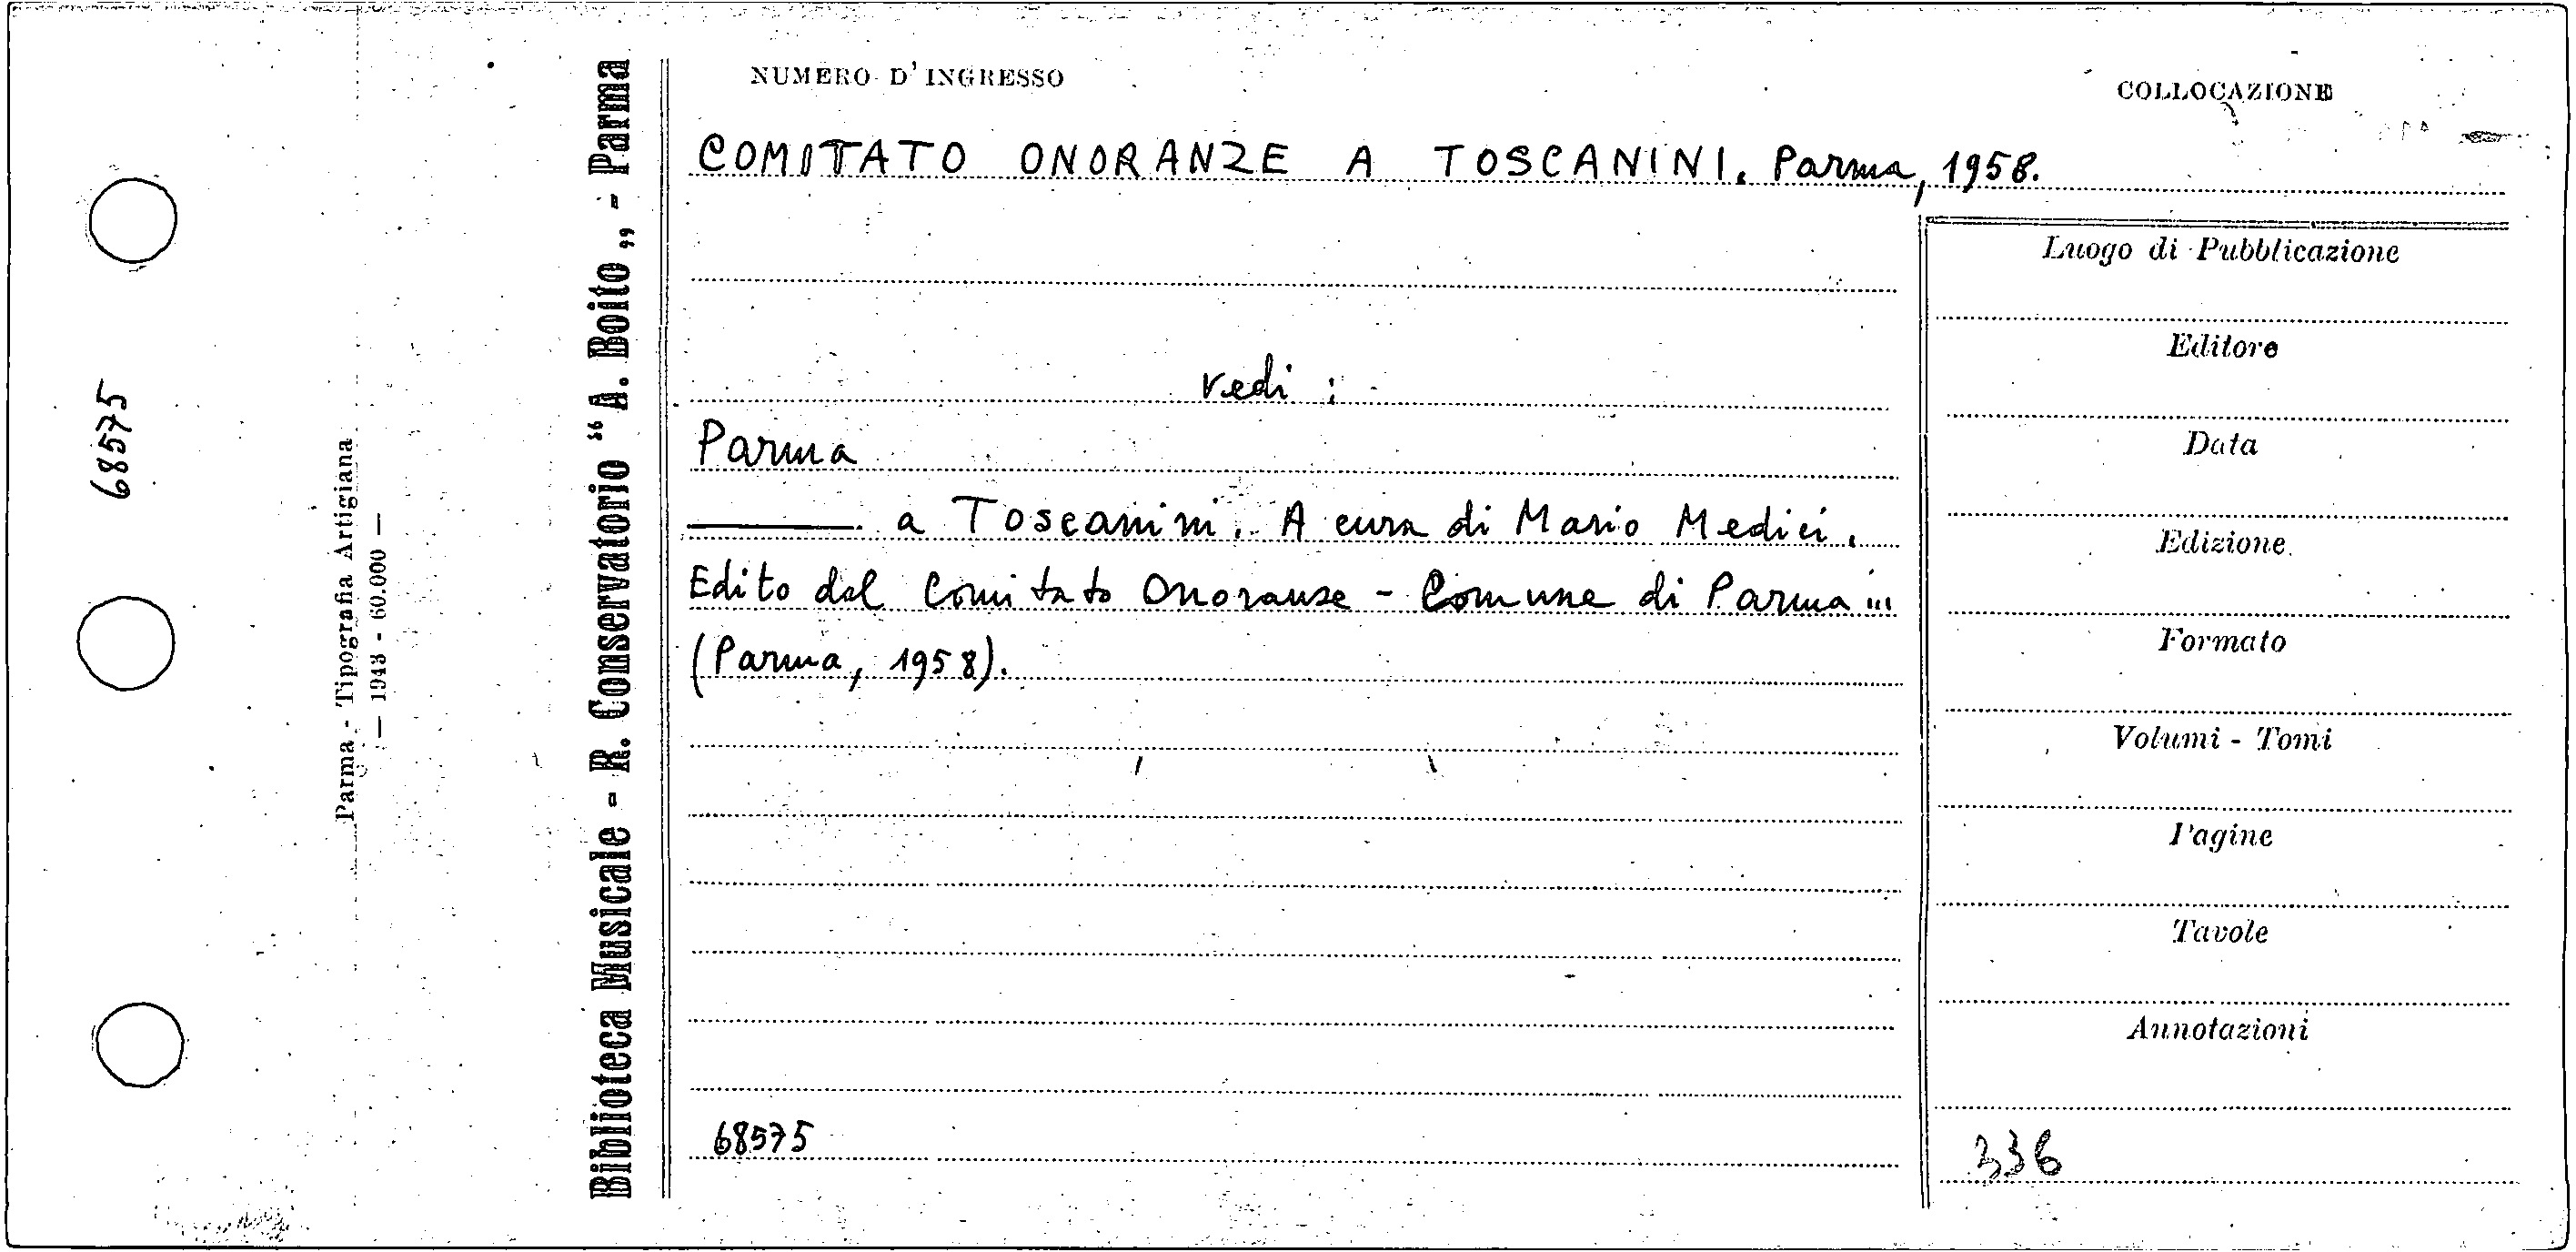 68575
Parma - Tipografia Artigiana
— 1943 - 60.000 —
Biblioteca Musicale - R. Conservatorio “A. Boito„ - Parma
NUMERO D'INGRESSO
COLLOCAZIONE
COMITATO ONORANZE A TOSCANINI. Parma, 1958.
vedi :
Parma
——— a Toscanini. A cura di Mario Medici.
Edito dal Comitato Onoranze - Comune di Parma...
(Parma, 1958).
68575
Luogo di Pubblicazione
Editore
Data
Edizione
Formato
Volumi - Tomi
Pagine
Tavole
Annotazioni
336